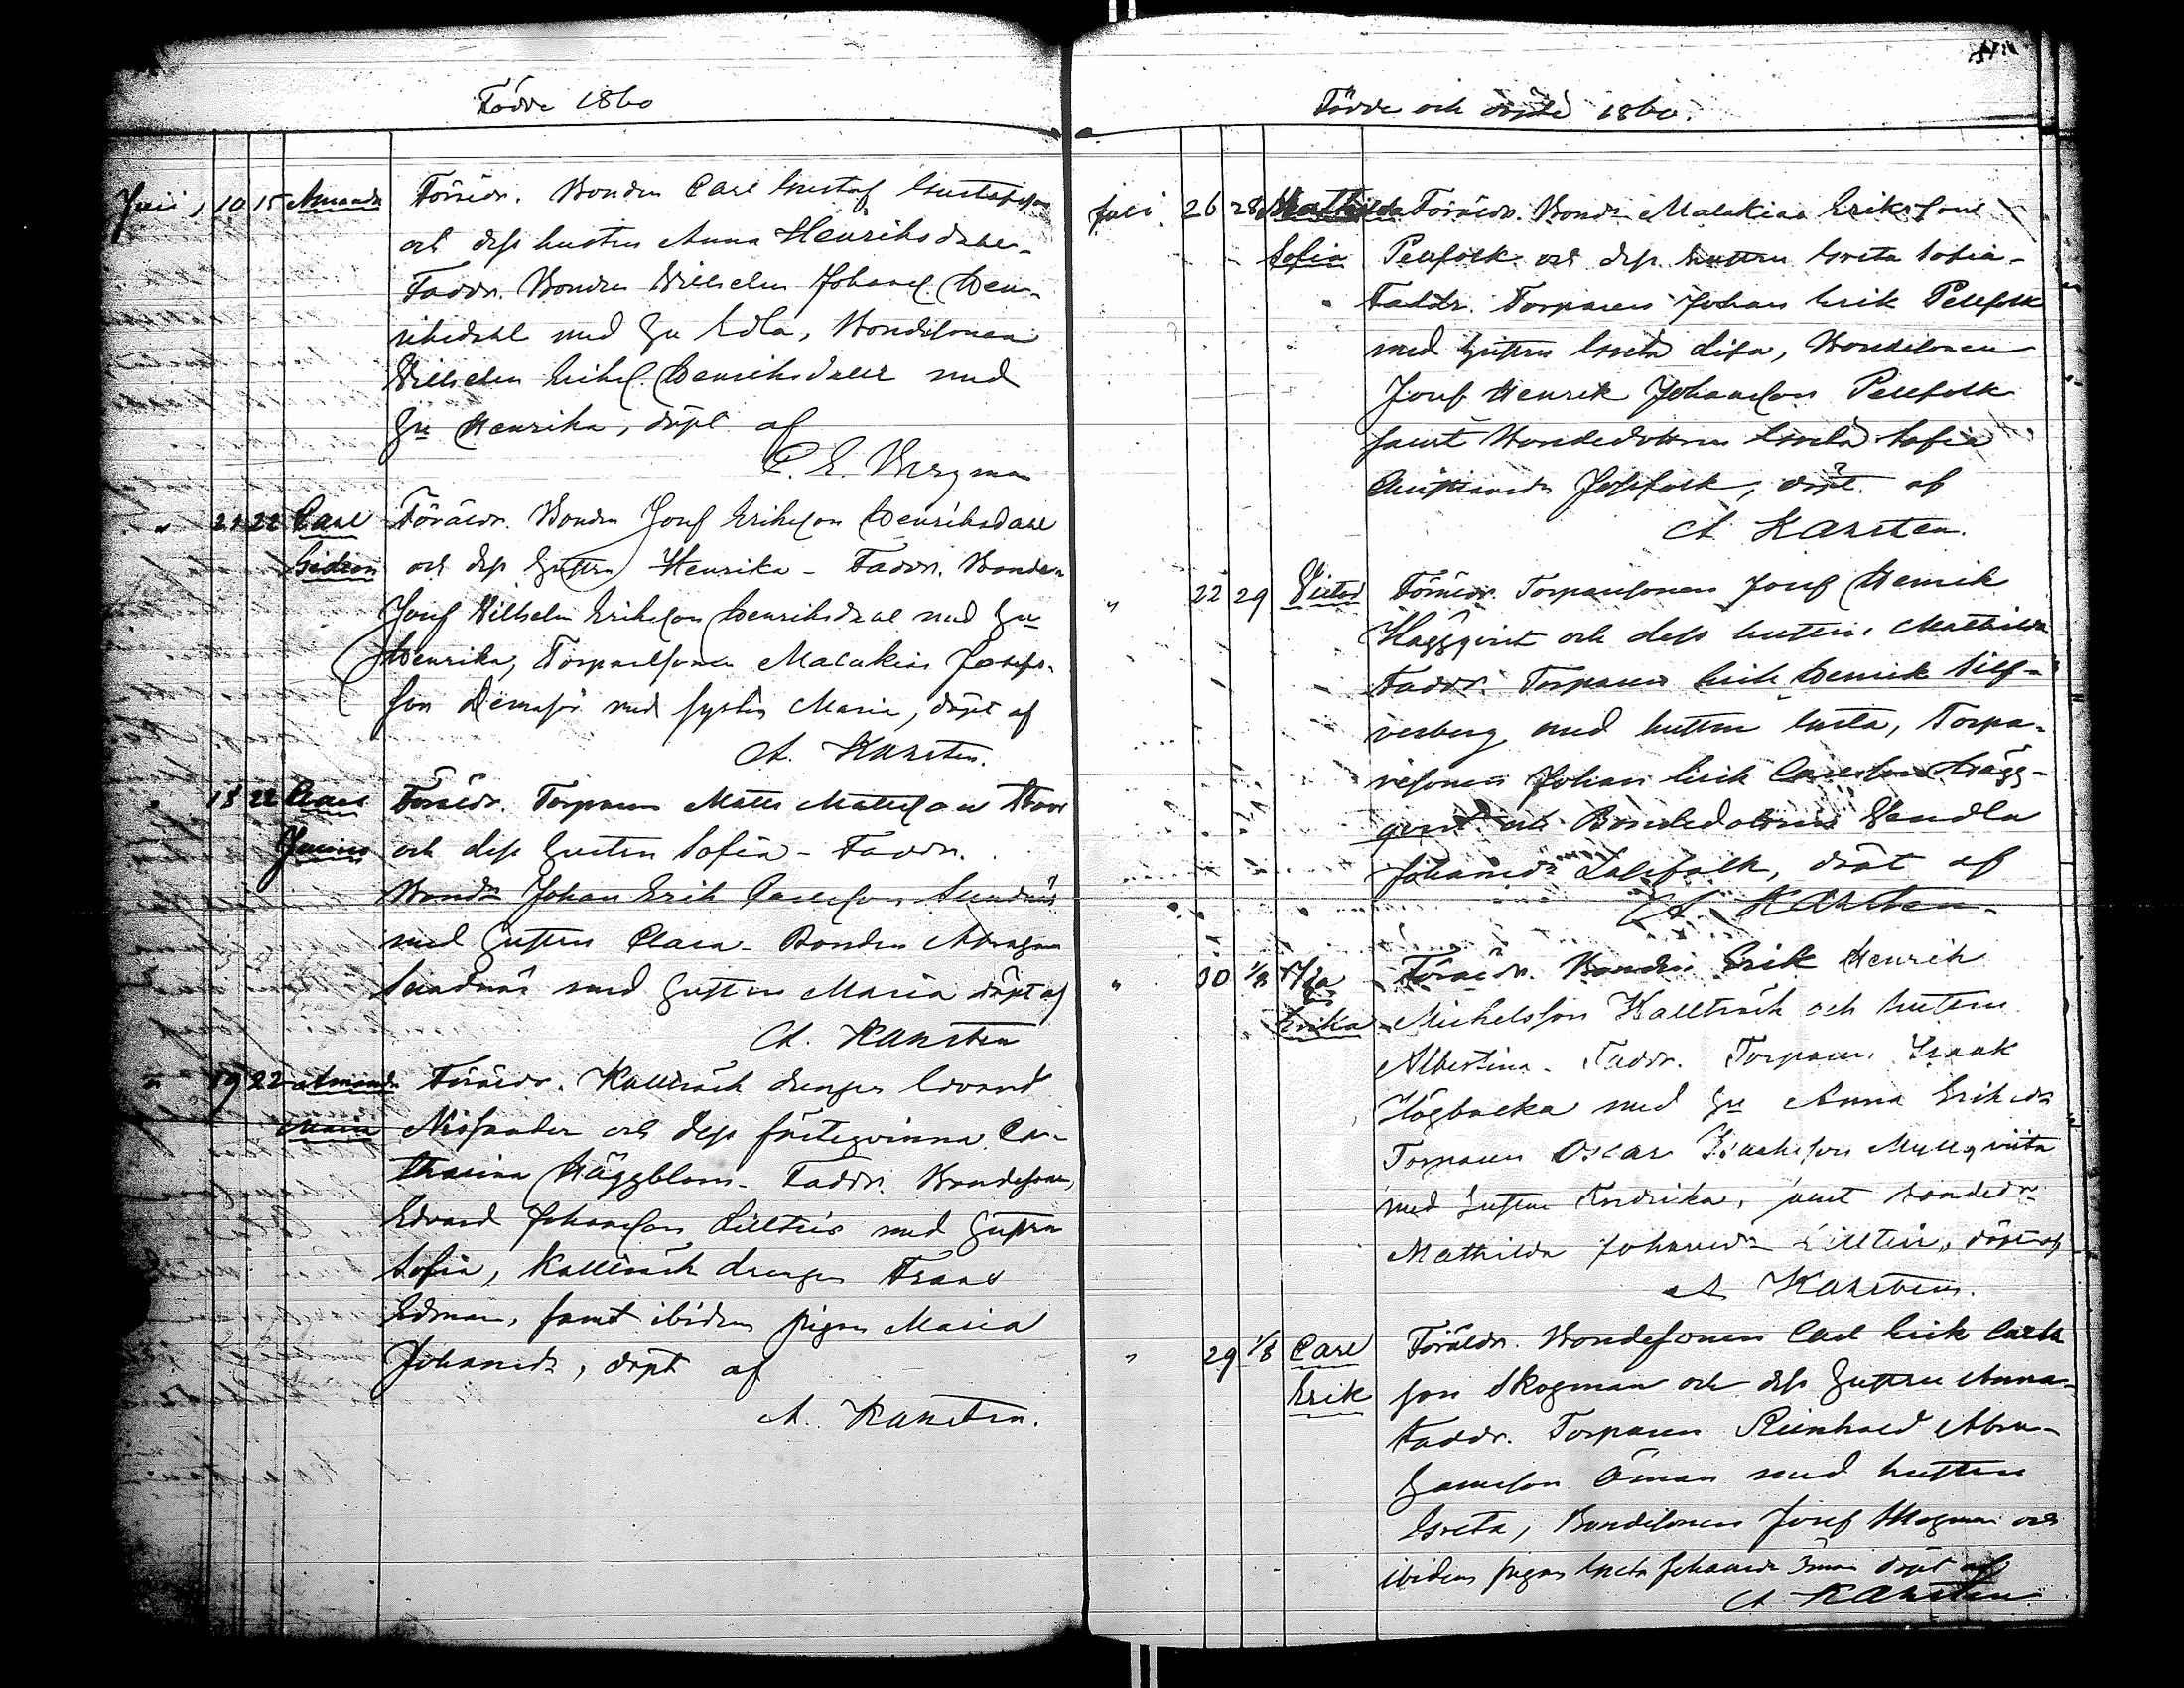 Födde 1860
Juli 10 15 Amanda Föräldr. Bonden Carl Gustaf Gustafsson
och dess hustru Anna Henriksdaher -
Faddr. Bonden Wilhelm Johans. Hen-
riksdahl med hu Edla, Bondesonen
Wilhelm Eriks. Henriksdahl med
hu Henrika, döpt af
C. E. Bergman
" 21 22 Carl Föräldr. Bonden Josef Eriksson Henriksdahl
Gideon och dess hustru Henrika - Faddr. Bonden
Josef Wilhelm Eriksson Henriksdal med hu
Henrika, Torparesonen Malakias Josefs-
son med syster Maria, döpt af
A. Karsten.
" 18 22 Claes Föräldr. Torparen Matts Mattsson
Junius och dess hustru Sofia - Faddr.
Bond. Johan Erik Carlsson Sundnäs
med hustru Clara - Bonden Abraham
Sundnäs med hustru Maria döpt af
A. Karsten
" 19 22 Amanda Föräldr. Kallträsk drengen Edvard
Maria Nissander och dess fästeqvinna Ca-
tharina Häggblom - Faddr. Bondesonen
Edvard Johansson Lilltius med hustru
Sofia, Kallträsk drengen Frans
Edman, samt ibidem pigan Maria
Johansdr, döpt af
A. Karsten.
Födde och döpte 1860.
Juli 26 28 Mathilda Föräldr. Bond. Malakias Eriksson
Sofia Pellfolk och dess hustru Greta Sofia -
Faddr. Torparen Johan Erik Pellfolk
med hustru Greta Lisa, Bondesonen
Josef Henrik Johansson Pellfolk
samt Bondedottren Greta Sofia
döpt af
A. Karsten.
" 22 29 Victor Föräldr. Torparesonen Josef Henrik
Häggqvist och dess hustru Mathilda
Faddr. Torparen Erik Henrik Silf-
verberg med hustru Greta, Torpa-
resonen Johan Erik Carlsson Hägg-
qvist och Bondedottren Wendla
Johansdr döpt af
A. Karsten.
" 30 1/8 Ida Föräldr. Bonden Erik Henrik
Erika Michelsson Kallträsk och hustru
Albertina. Faddr. Torparen Isaak
Högbacka med hu Anna Eriksdr
Torparen Oscar Isaksson Myllyviita
med hustru Fredrika, samt bondedr
Mathilda Johansdr döpt af
A Karsten.
" 29 1/8 Carl Föräldr. Bondesonen Carl Erik Carls
Erik son Skogman och dess hustru Anna -
Faddr. Torparen Reinhold Abra-
hamsson Öman med hustru
Greta, Bondesonen Josef Skogman och
ibidem pigan Greta Johansdr Öman döpt af
A Karsten